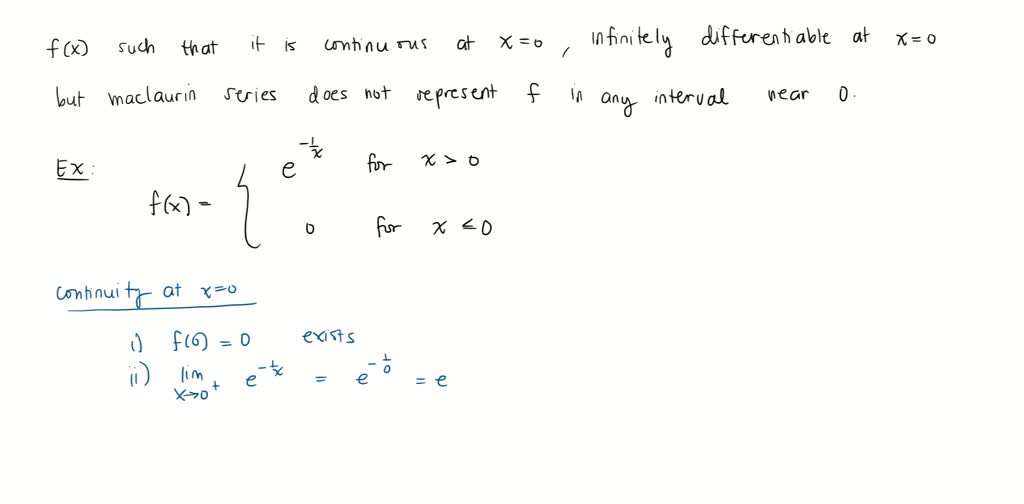 f(x) such that it is continuous at x=0, infinitely differentiable at x=0
but maclaurin series does not represent f in any interval near 0.
Ex: f(x) = { e^{-1/x} for x > 0
0 for x ≤ 0
continuity at x=0
i) f(0) = 0 exists
ii) lim_{x→0^+} e^{-1/x} = e^{-1/0} = e